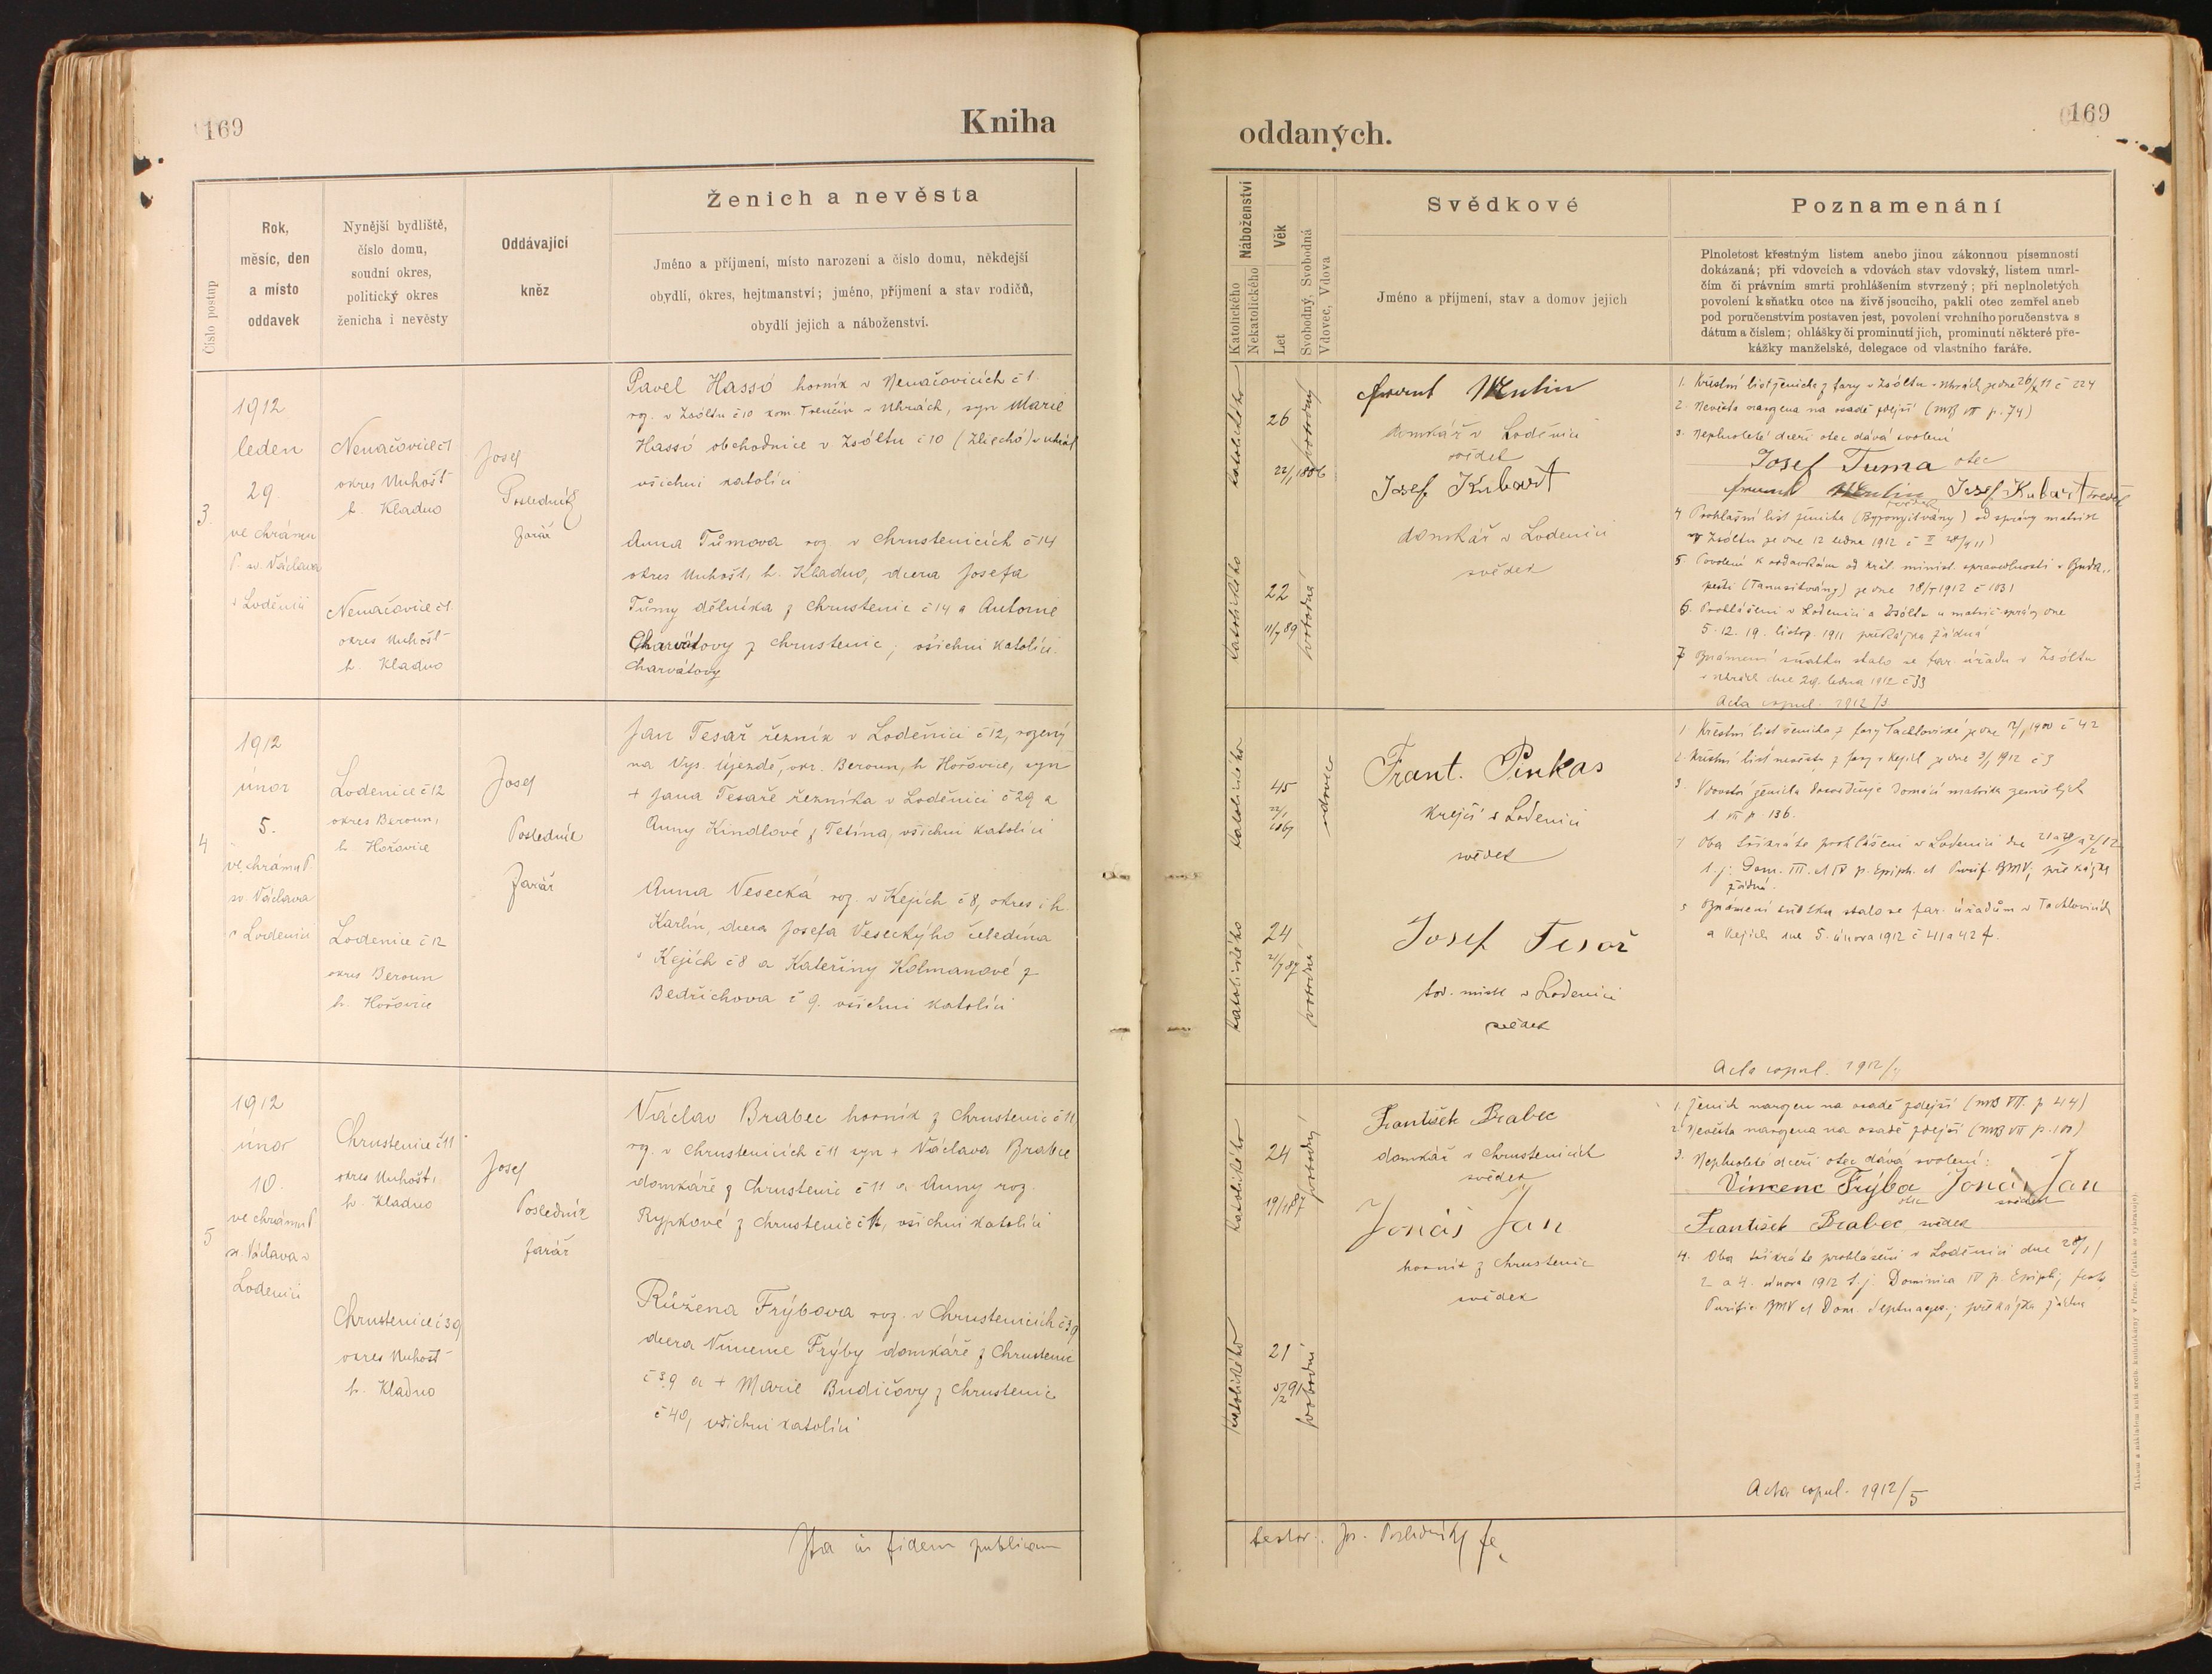 169
Kniha
Číslo postup
Rok,
měsíc, den
a místo
oddavek
Nynější bydliště,
číslo domu,
soudní okres,
politický okres
ženicha i nevěsty
Oddávající
kněz
Ženich a nevěsta
Jméno a příjmení, místo narození a číslo domu, někdejší
obydlí, okres, hejtmanství; jméno, příjmení a stav rodičů,
obydlí jejich a náboženství.
3.
1912
leden
29
ve chrámu
P. sv. Václava
v Loděnici
Nenačovice č 1
okres Unhošť
h. Kladno
Nenačovice č 1.
okres Unhošť
h. Kladno
Josef
Posledník
farář
Pavel Hassó horník v Nenačovicích č 1.
roz. v Zsóltu č 10 kom. Trenčín v Uhrách, syn Marie
Hassó obchodnice v Zsóltu č 10 (Zliechó) v Uhrách
všichni katolíci
Anna Tůmova roz. v Chrustenicích č 14
okres Unhošť, h. Kladno, dcera Josefa
Tůmy dělníka z Chrustenic č 14 a Antonie
Charvátovy z Chrustenic; všichni katolíci.
Charvátovy
4
1912
únor
5.
ve chrámu P.
sv. Václava
v Lodenici
Lodenice č 12
okres Beroun,
h. Hořovice
Lodenice č 12
okres Beroun
h. Hořovice
Josef
Posledník
farář
Jan Tesař řezník v Loděnici č 12, rozený
na Vys. Újezdě, okr. Beroun, h Hořovice, syn
+ Jana Tesaře řezníka v Loděnici č 29 a
Anny Kindlové z Tetína, všichni katolíci
Anna Vesecká roz. v Kejích č 8, okres i h.
Karlín, dcera Josefa Veseckýho čeledína
v Kejích č 8 a Kateřiny Kolmanové z
Bedřichova č 9. všichni katolíci
5
1912
únor
10.
ve chrámu P
sv. Václava v
Lodenici
Chrustenice č 11
okres Unhošť,
h. Kladno
Chrustenice č 39
okres Unhošť
h. Kladno
Josef
Posledník
farář
Václav Brabec horník z Chrustenic č 11,
roz. v Chrustenicích č 11 syn + Václava Brabce
domkáře z Chrustenic č 11 a Anny roz.
Rypkové z Chrustenic č, všichni katolíci
Růžena Frýbova roz. v Chrustenicích č 39
dcera Vincence Frýby domkáře z Chrustenic
č 39 a + Marie Budičovy z Chrustenic
č 40, všichni katolíci
Ita in fidem publicam
oddaných.
169
Náboženství
Katolického
Nekatolického
Věk
Let
Svobodný, Svobodná
Vdovec, Vdova
Svědkové
Jméno a příjmení, stav a domov jejich
Poznamenání
Plnoletost křestným listem anebo jinou zákonnou písemností
dokázaná; při vdovcích a vdovách stav vdovský, listem umrl-
čím či právním smrti prohlášením stvrzený; při neplnoletých
povolení k sňatku otce na živě jsoucího, pakli otec zemřel aneb
pod poručenstvím postaven jest, povolení vrchního poručenstva s
dátum a číslem; ohlášky či prominutí jich, prominutí některé pře-
kážky manželské, delegace od vlastního faráře.
katolického
26
22/1 1886
svobodný
katolického
22
11/7 89
svobodná
domkář v Loděnici
svědek
Josef Kubašt
domkář v Lodenici
svědek
1. Křestní list ženicha z fary v Zsóltu v Uhrách ze dne 26/X 11 č 224
2. Nevěsta narozena na osadě zdejší (MB VII p. 74)
3. Neplnoleté dceři otec dává svolení
Josef Tuma otec
Josef Kubašt svědek
4 Prohlašní list ženicha (Bizonyitvány) od správy matrik
v Zsóltu ze dne 12 ledna 1912
5. Povolení k oddavkám od král. minist. spravedlnosti v Buda-
pešti (Tanusitvány) ze dne 18/I 1912 č 1031
6. Prohlášeni v Lodenici a Zsóltu u matrič. správy dne
5. 12. 19. listop. 1911 překážka žádná
7 Oznámení sňatku stalo se far. úřadu v Zsóltu
v Uhrách dne 29. ledna 1912 č 33
Acta copul. 1912/3
katolického
45
22/1
1867
vdovec
katolického
24
21/7 87
svobodná
Frant. Pinkas
krejčí v Lodenici
svědek
Josef Tesař
tov. mistr v Lodenici
svědek
1 Křestní list ženicha z fary Tachlovické ze dne 12/1 1900 č 42
2. Křestní list nevěsty z fary v Kejích ze dne 3/1 1912 č 3
3. Vdovství ženicha dosvědčuje domácí matrika zemřelých
t VII p 136.
4 Oba třikráte prohlášeni v Lodenici dne 21 a 28/1 a 2/2 12
t. j. Dom. III. et IV p. Epiph. et Purif. BMV; překážka
žádná.
5 Oznámení sňatku stalo se far. úřadům v Tachlovicích
a Kejích dne 5. února 1912 č 41 a 42 f.
Acta copul. 1912/4
katolického
24
19/1 87
svobodný
katolického
21
5/2 91
svobodná
František Brabec
domkář v Chrustenicích
svědek
Jonáš Jan
horník z Chrustenic
svědek
1. Ženich narozen na osadě zdejší (MB VII. p 44)
2. Nevěsta narozena na osadě zdejší (MB VII p. 100)
3. Neplnoleté dceři otec dává svolení:
Vincenc Frýba Jonáš Jan
otec svědek
František Brabec svědek
4. Oba třikráte prohlášeni v Loděnici dne 28/1
2 a 4. února 1912 t. j. Dominica IV p. Epiph; festo
Purific BMV et Dom. Septuages.; překážka žádná
Acta copul. 1912/5
testor. Jos. Posledník
Tiskem a nákladem knih. arcib. knihtiskárny v Praze. (Patisk se vyhrazuje).